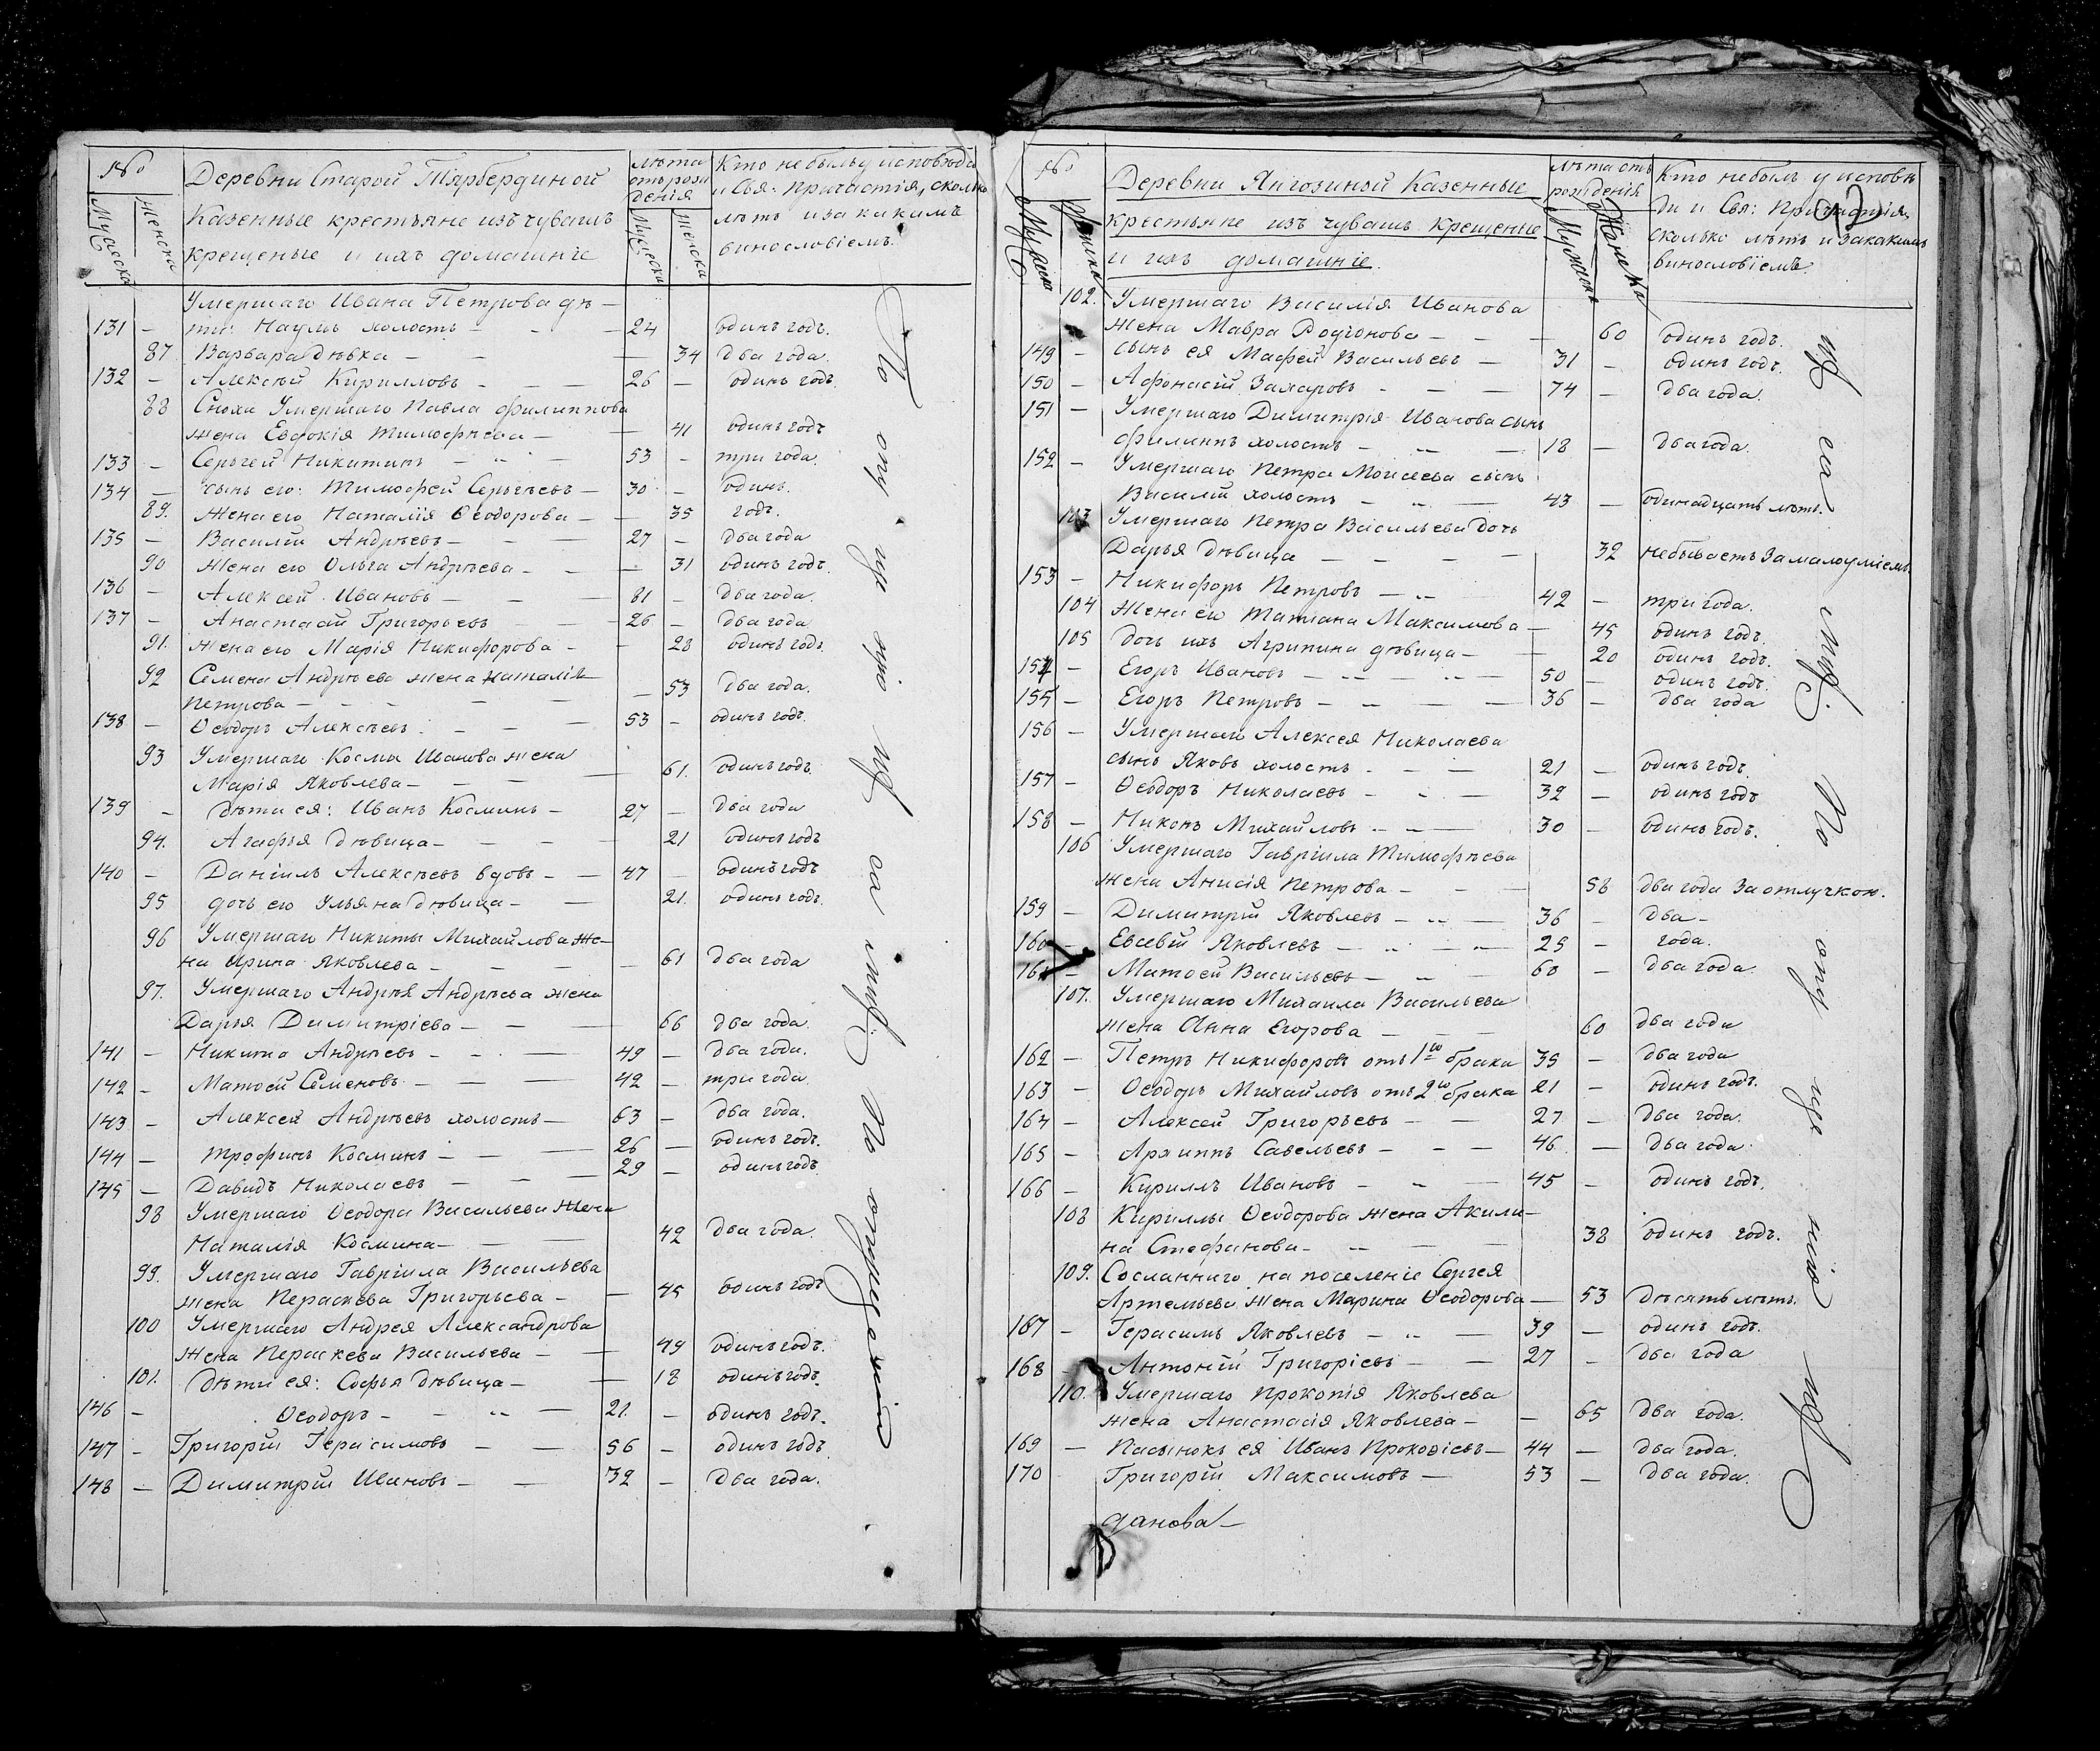 №
Деревни Старой Тярбердиной
Казенные крестьяне изъ чувашъ
крещеные и ихъ домашніе
Мужеска
Женска
лѣта
отъ рож
денія
Мужеска
Женска
Кто небылъ у исповѣди
и Свя: Причастія, сколько
лѣтъ и за какимъ
винословіемъ.
Умершаго Ивана Петрова дѣ—
131 — ти: Наумъ холостъ — — — 24 одинъ годъ.
87. Варвара дѣвка — — — 34 два года.
132 — Алексѣй Кирилловъ — — — 26 — одинъ годъ.
88 Сноха Умершаго Павла Филиппова
жена Евдокія Тимофѣева — — 41 одинъ годъ
133 — Сергѣй Никитинъ — „ — 53 — три года.
134 — сынъ его: Тимофей Сергѣевъ — 30 — одинъ.
89. жена его Наталія Ѳеодорова — — 35 годъ.
135 — Василій Андрѣевъ — — — 27 — два года
90 жена его Ольга Андрѣева — — — 31 одинъ годъ.
136 — Алексей Ивановъ — — — 81 — два года.
137 — Анастасій Григорьевъ — — 26 — два года
91. жена его Марія Никифорова — — 28 одинъ годъ.
92 Семена Андрѣева жена Наталія
Петрова — — — — — — 53 два года.
138 — Ѳеодоръ Алексѣевъ. — — — 53 — одинъ годъ.
93 Умершаго Космы Иванова жена
Марія Яковлева — — — — 61. одинъ годъ.
139 — дѣти ея: Иванъ Косминъ — 27 — два года
94. Агафья дѣвица — — — — 21 одинъ годъ
140 — Даніилъ Алексѣевъ вдовъ — — 47 — одинъ годъ
95 дочь его Ульяна дѣвица — — 21. одинъ годъ.
96 Умершаго Никиты Михайлова же—
на Ирина Яковлева — — — — 61 два года
97. Умершаго Андрея Андрѣева жена
Дарья Димитріева — — — 66 два года.
141 — Никита Андрѣевъ — — — 49 — два года.
142 — Матѳей Семеновъ — — — 42 — три года.
143 — Алексей Андрѣевъ холостъ — 63 — два года.
144 — Трофимъ Косминъ — — — 26 — одинъ годъ.
145 — Давидъ Николаевъ — — — 29 — одинъ годъ.
98 Умершаго Ѳеодора Васильева жена
Наталія Космина — — — 42 два года.
99. Умершаго Гавріила Васильева
жена Параскева Григорьева — — 45 одинъ годъ
100 Умершаго Андрея Александрова
жена Параскева Васильева — — 49 одинъ годъ.
101. дѣти ея: Софья дѣвица — — 18 одинъ годъ.
146 — Ѳеодоръ — — „ — 21. — одинъ годъ.
147 — Григорій Герасимовъ — — 56 — одинъ годъ.
148 — Димитрій Ивановъ — — 32 — два года.
№
Деревни Янгозиной Казенные
крестьяне изъ чувашъ крещеные
и ихъ домашніе.
Мужеска
Женска
лѣта отъ
рожденія
Мужеска
Женска
Кто небылъ у исповѣ
ди и Свя: Причастія,
сколько лѣтъ и за какимъ
винословіемъ.
102. Умершаго Василія Иванова
жена Мавра Родіонова — — — 60 одинъ годъ.
149 — сынъ ея Мафей Васильевъ — 31 — одинъ годъ.
150 — Афонасій Захаровъ — — — 74 — два года.
151 — Умершаго Димитрія Иванова сынъ
Филиппъ холостъ — — — 18 — два года.
152 — Умершаго Петра Моисеева сынъ
Василій холостъ — — — 43 — одинадцать лѣтъ.
103 Умершаго Петра Васильева дочь
Дарья дѣвица — — — — 32 небываетъ за малоуміемъ
153 — Никифоръ Петровъ — „ — 42 — три года.
104 жена его Татіана Максимова — 45 одинъ годъ.
105 дочь ихъ Агрипина дѣвица — — 20 одинъ годъ.
154 — Егоръ Ивановъ — „ — „ — 50 — одинъ годъ.
155 — Егоръ Петровъ — — — — 36 — два года
156 — Умершаго Алексея Николаева
сынъ Яковъ холостъ — — — 21 — одинъ годъ.
157 — Ѳеодоръ Николаевъ — — — 32 — одинъ годъ
158 — Никонъ Михайловъ — — — 30 — одинъ годъ.
106 Умершаго Гавріила Тимофѣева
жена Анисія Петрова — — — 58 два года за отлучкою.
159 — Димитрій Яковлевъ — „ — 36 — два —
160 — Евсевій Яковлевъ — „ — 25 — года.
161 — Матѳей Васильевъ — — — 60 — два года.
107. Умершаго Михаила Васильева
жена Анна Егорова — — — 60 два года
162 — Петръ Никифоровъ отъ 1го брака 35 — два года
163 — Ѳеодоръ Михайловъ отъ 2го брака 21 — одинъ годъ.
164 — Алексей Григорьевъ — — 27 — два года.
165 — Архиппъ Савельевъ — — — 46 — два года.
166 — Кириллъ Ивановъ — „ — 45 — одинъ годъ.
108 Кириллы Ѳеодорова жена Акили—
на Стефанова — „ — — 38 одинъ годъ.
109. Сосланнаго на поселеніе Сергея
Артемьева жена Марина Ѳеодорова — 53 дѣсять лѣтъ.
167 — Герасимъ Яковлевъ — „ — 39 — одинъ годъ.
168 — Антоній Григоріевъ — — 27 — два года
110. Умершаго Прокопія Яковлева
жена Анастасія Яковлева — — 65 два года.
169 — Пасынокъ ея Иванъ Прокопіевъ — 44 — два года.
170 Григорій Максимовъ — 53 — два года.